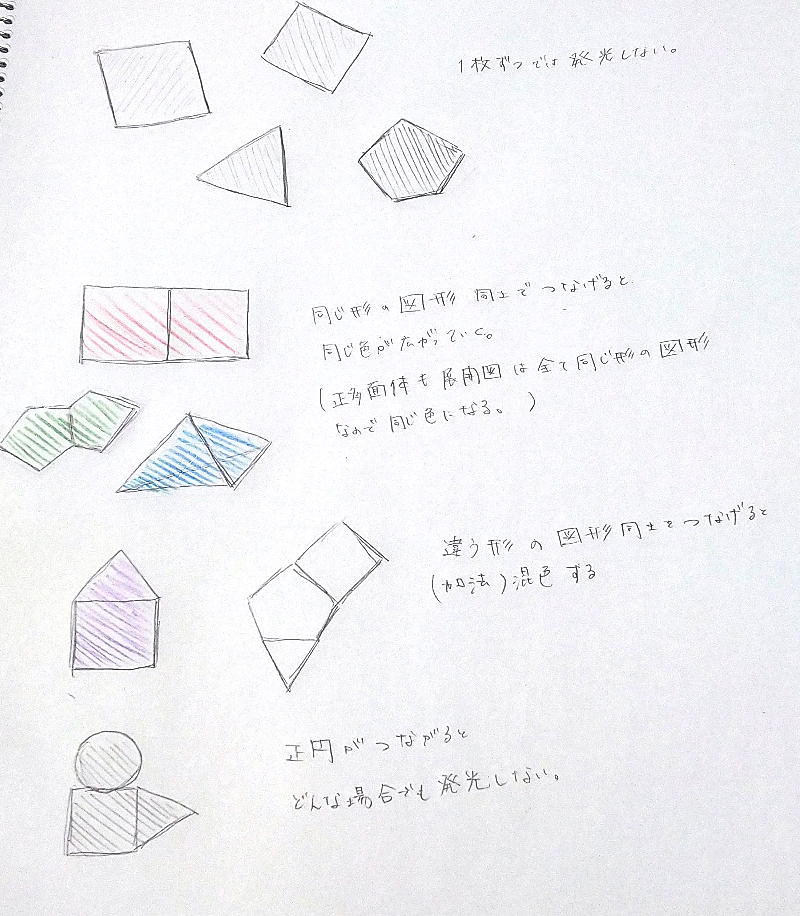 1枚ずつでは発光しない。
同じ形の図形同士でつなげると
同じ色が広がっていく。
(正多面体も展開図は全て同じ形の図形
なので同じ色になる。)
違う形の図形同士をつなげると
(加法)混色する
正円がつながると
どんな場合でも発光しない。